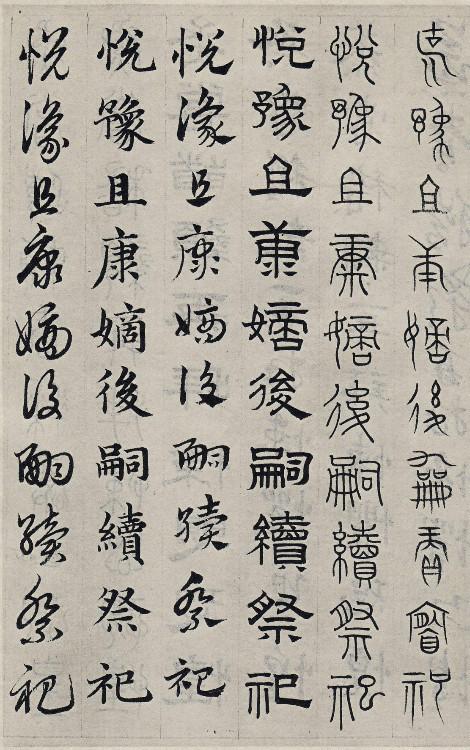 悦豫且康嫡後嗣續祭祀
悦豫且康嫡後嗣續祭祀
悦豫且康嫡後嗣續祭祀
悦豫且康嫡後嗣續祭祀
悦豫且康嫡後嗣續祭祀
悦豫且康嫡後嗣續祭祀